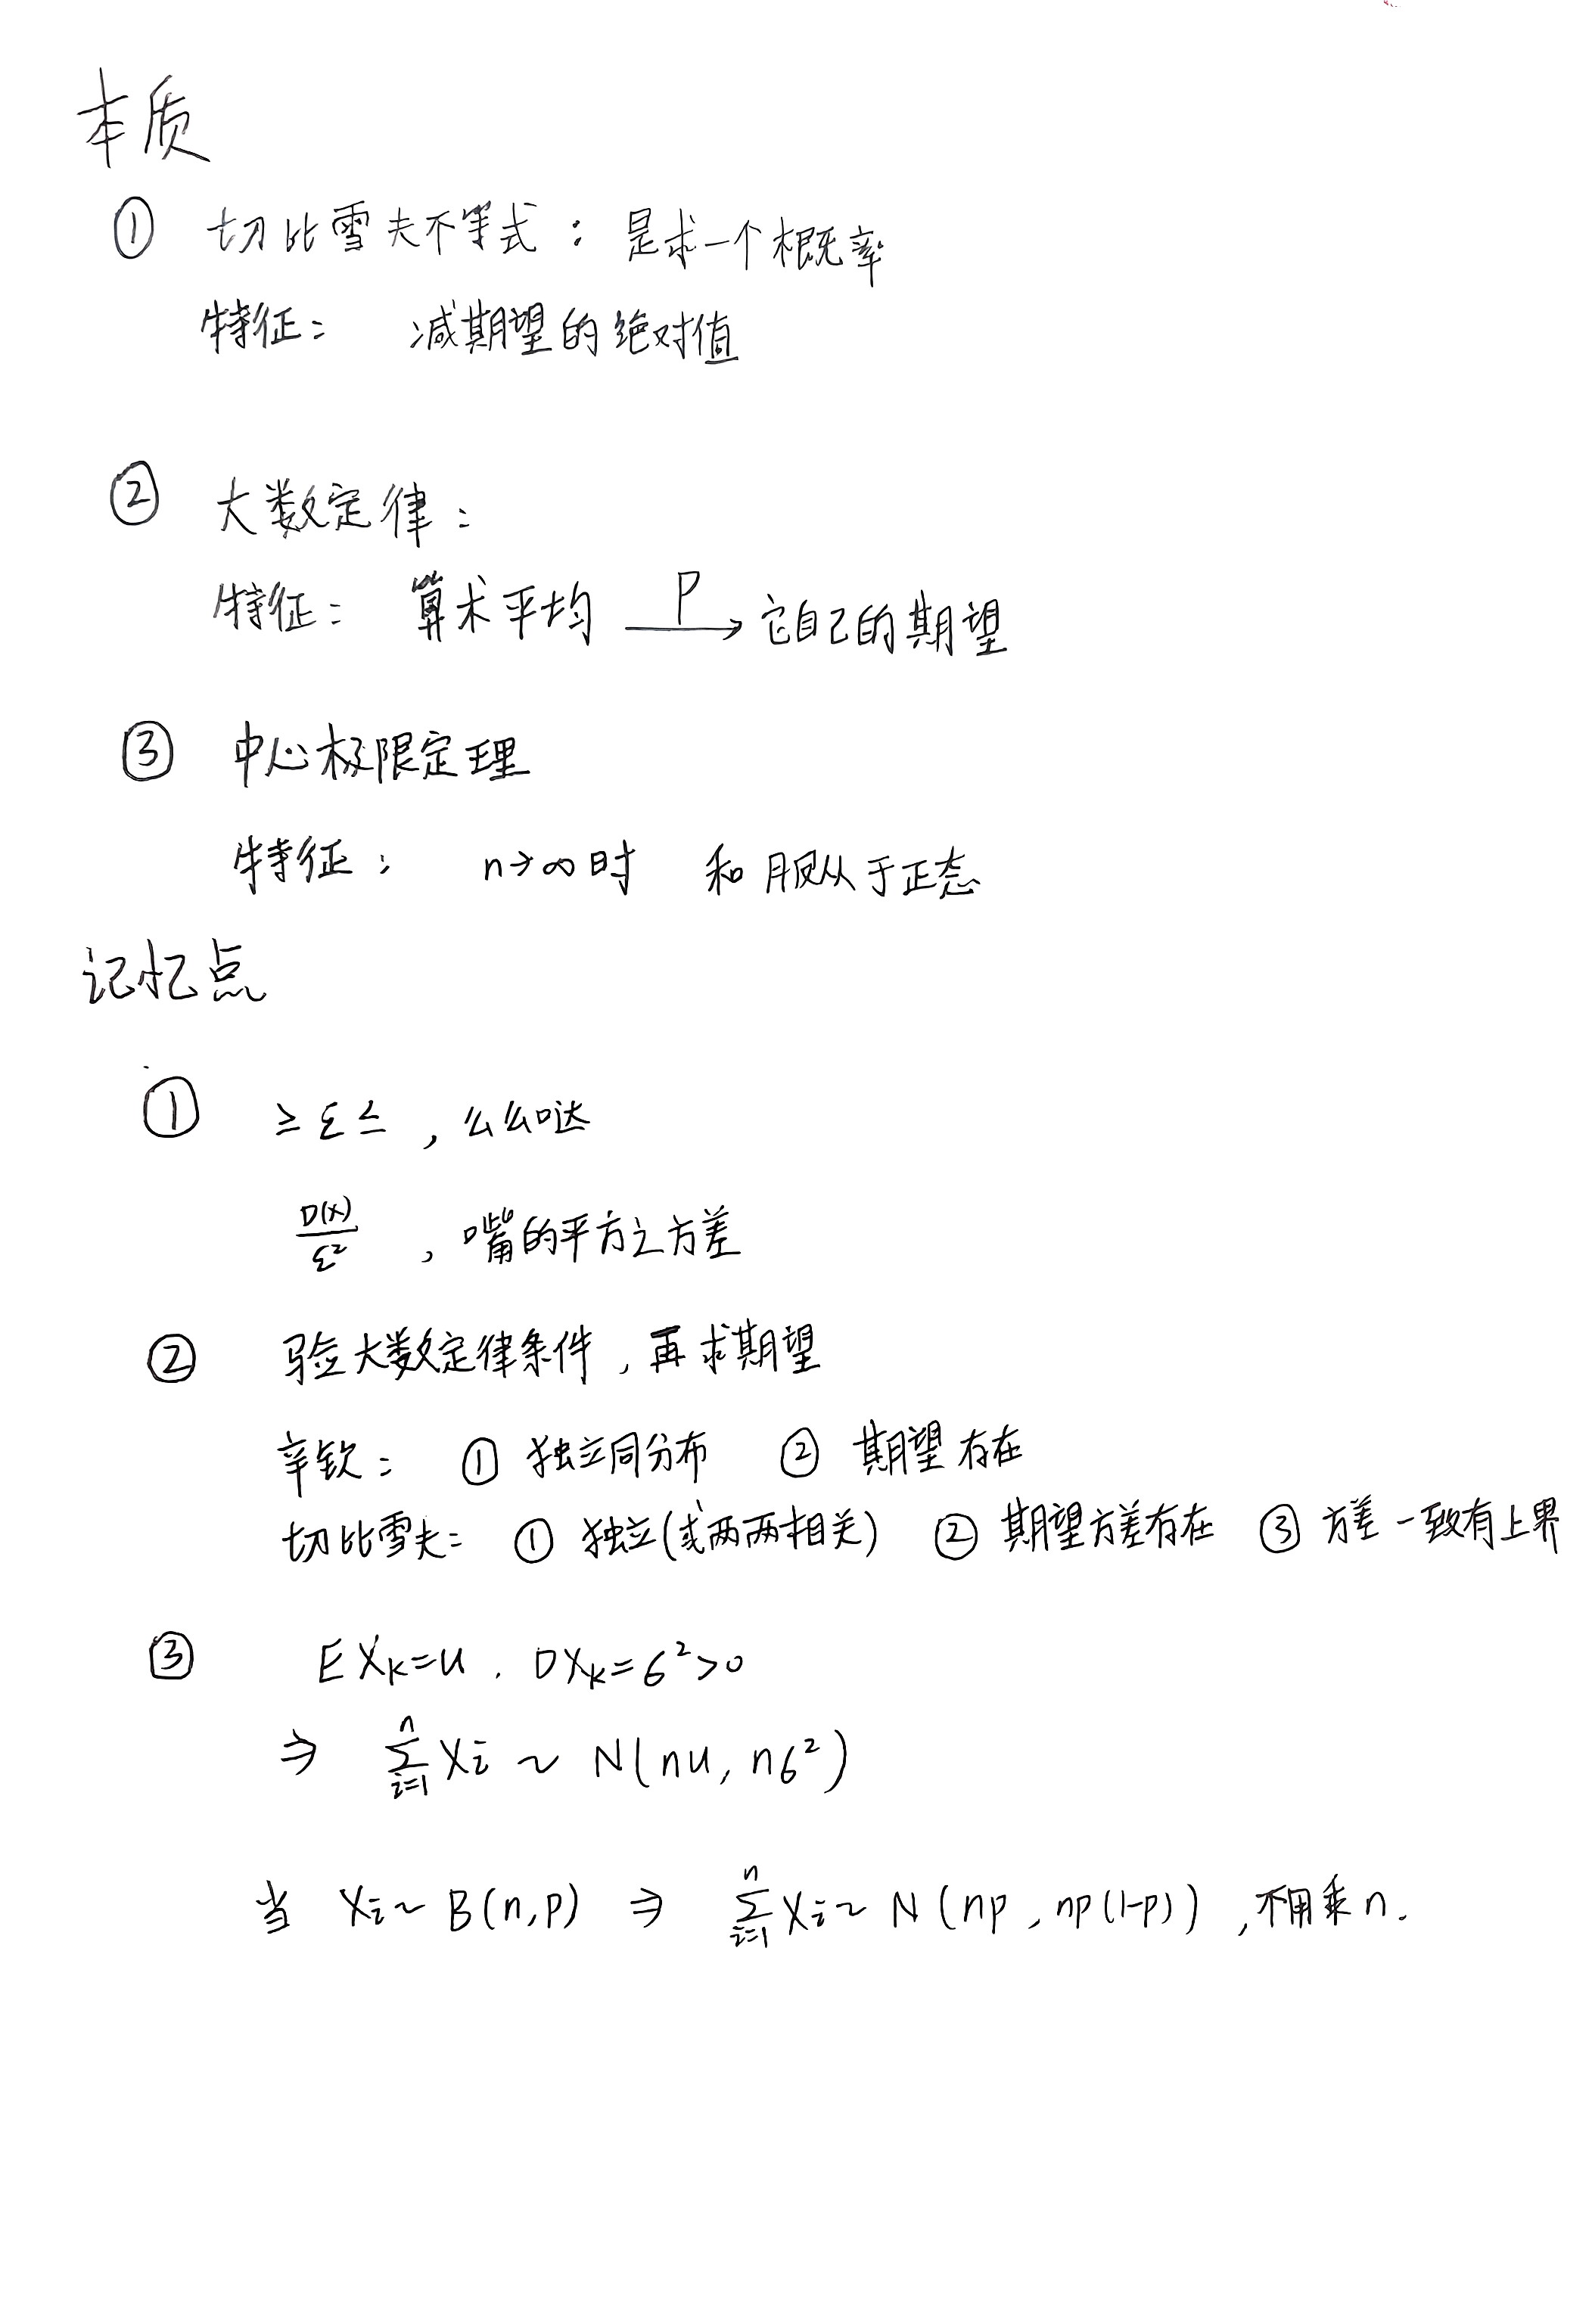 本质
① 切比雪夫不等式：是求一个概率
特征： 减期望的绝对值
② 大数定律：
特征： 算术平均 —P→ 它自己的期望
③ 中心极限定理
特征： n→∞时 和服从于正态
记忆点
① ≥ε≤ ，么么哒
D(x)/ε² ，嘴的平方之方差
② 验大数定律条件，再求期望
辛钦： ① 独立同分布 ② 期望存在
切比雪夫： ① 独立(或两两相关) ② 期望方差存在 ③ 方差一致有上界
③ EXk=u . DXk=6²>0
⇒ ∑_{i=1}^{n} Xi ~ N(nu, n6²)
当 Xi~B(n,p) ⇒ ∑_{i=1}^{n} Xi ~ N(np, np(1-p)) ,不用乘n.